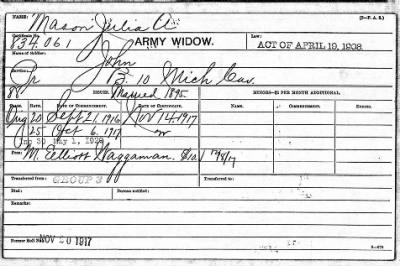 NAME: Mason Julia A (3-F.A.S.)
Certificate No. 834.061 ARMY WIDOW. Law: ACT OF APRIL 19, 1908.
Name of Soldier: John
Service: Pr B. 10 Mich Cav.
88 ISSUE. Married 1895. MINORS—$2 PER MONTH ADDITIONAL.
CLASS. RATE. DATE OF COMMENCEMENT. DATE OF CERTIFICATE. NAME. DATE OF COMMENCEMENT. DATE OF ENDING.
Aug 20 Sept 21, 1916 Nov 14, 1917
25 Oct 6, 1917
30 May 1, 1920
From M. Eelliott Waggaman. 12/8/17
Transferred from: GROUP 3
Died: Bureau notified:
Remarks:
Former Roll No. NOV 20 1917